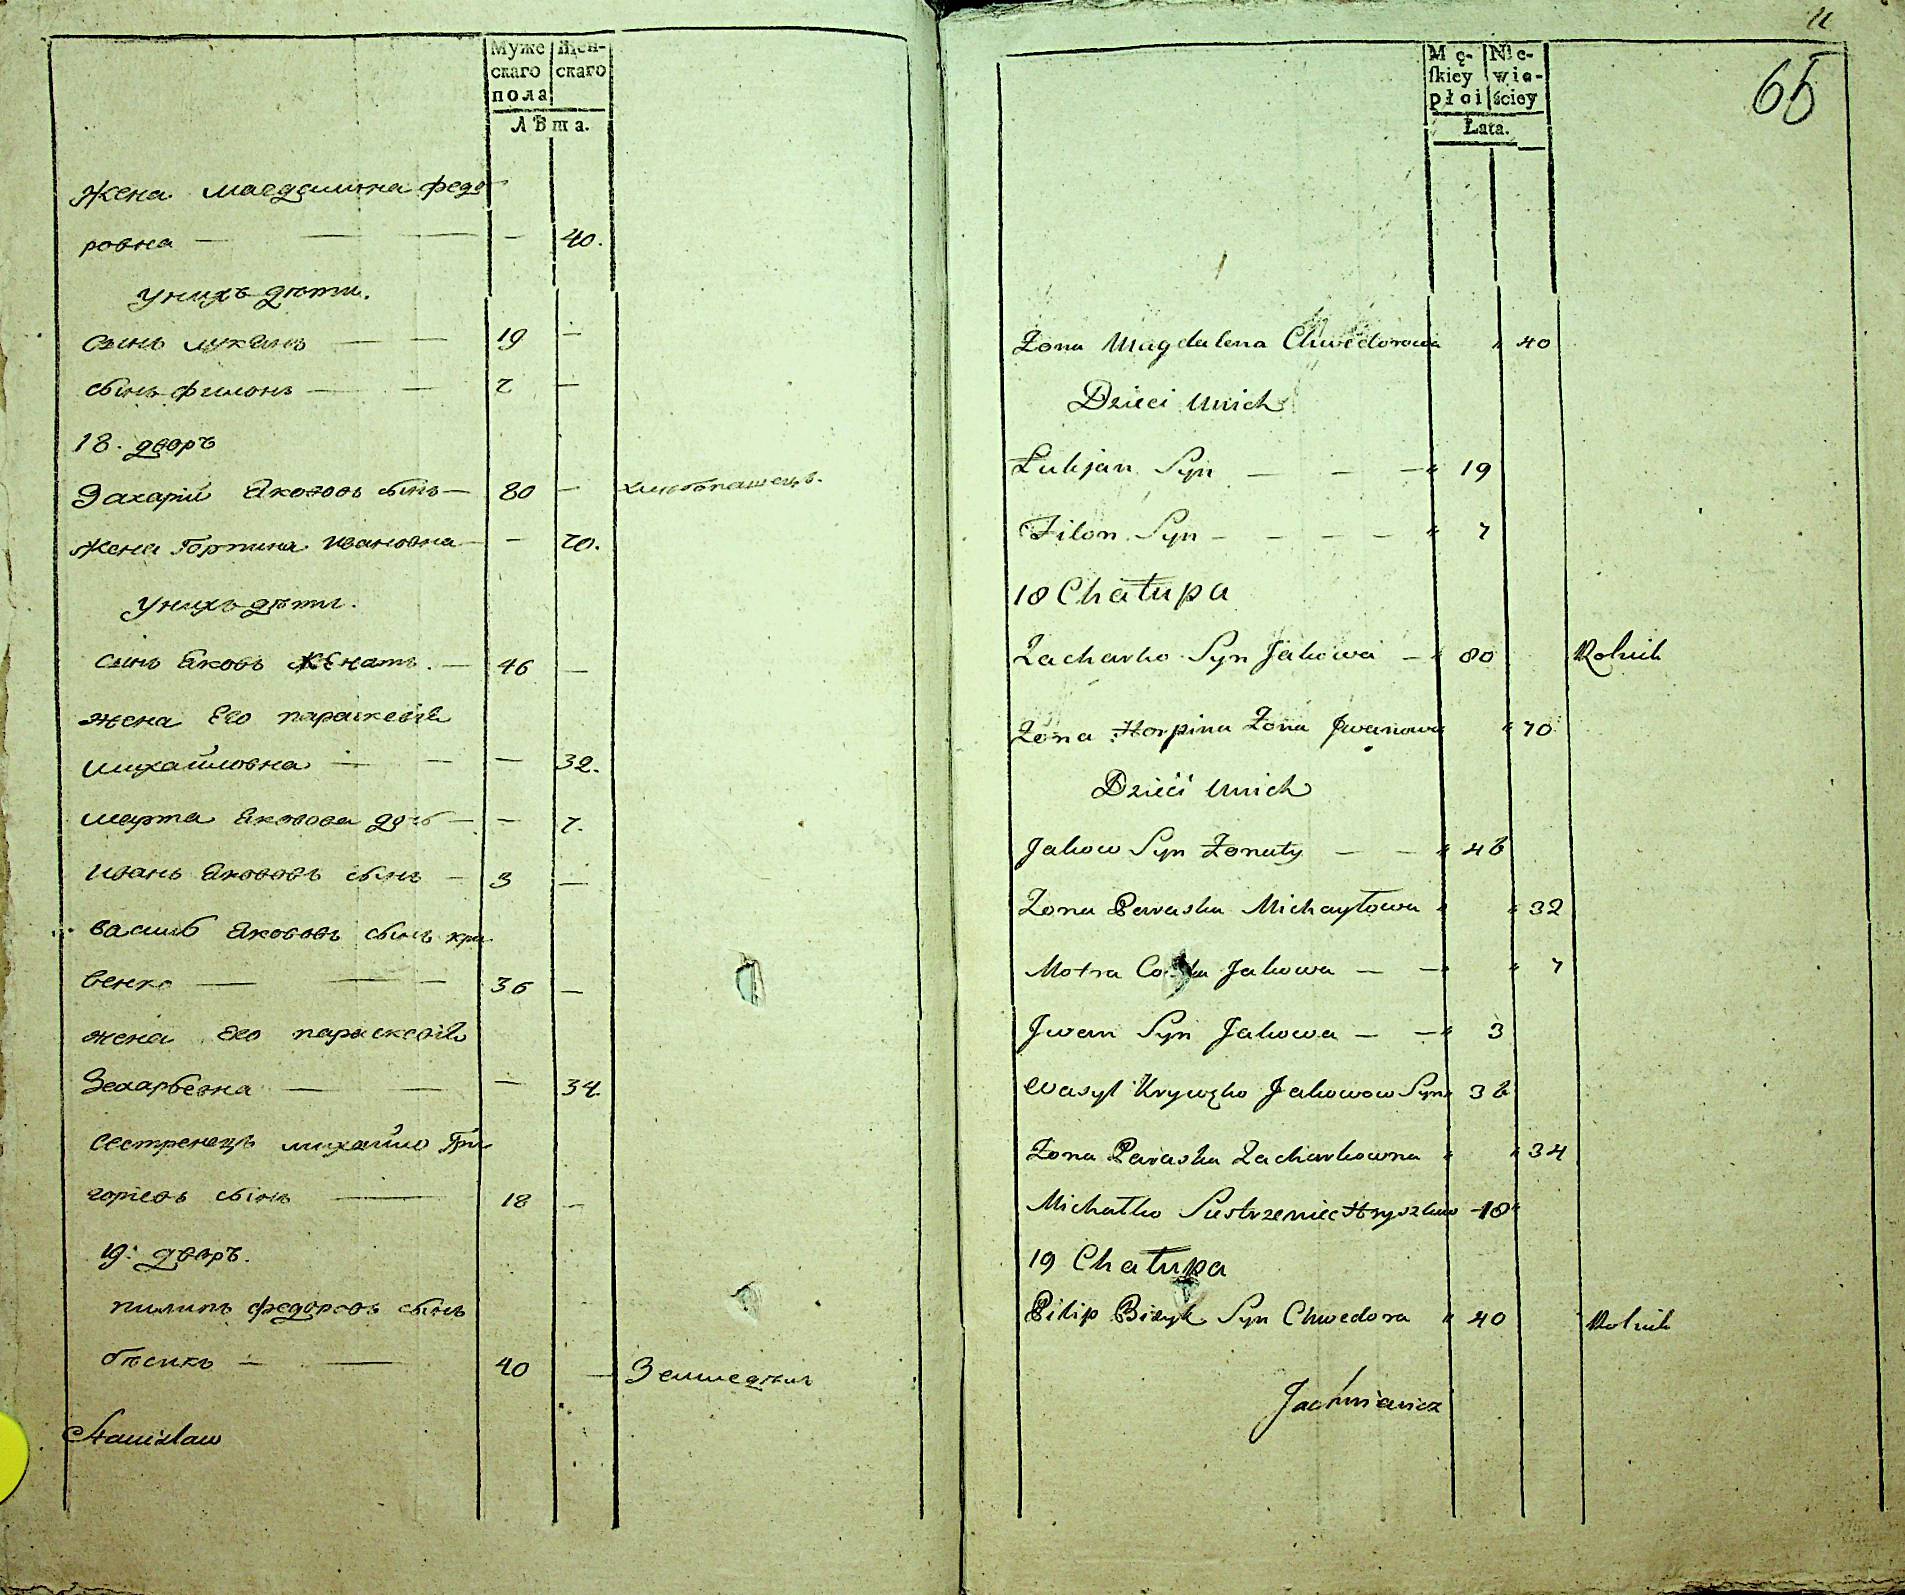 Муже Жен-
скаго скаго
пола
Лѣта.
Жена Магдалина федо
ровна — — — — 40.
унихъ дѣти.
сынъ лукянъ — — 19 —
сынъ филонъ — — 7 —
18. дворъ
Захарій Якововъ сынъ — 80 — хлѣбопашецъ.
Жена Горпина Ивановна — — 70.
унихъ дѣти.
сынъ Яковъ жѣнатъ. — 46 —
жена Его параскевія
михайловна — — — 32.
марта Яковова дочь — — 7.
Иванъ Якововъ сынъ — 3 —
василь Якововъ сынъ кри
венко — — — 36 —
жена Его параскевія
Захарьевна — — — 34.
Сестренецъ михайло Гри
горіевъ сынъ — 18 —
19: дворъ.
пилипъ федоровъ сынъ
бѣсикъ — — 40 — Земледѣлъ
Stanisław
11
65
Mę- Nie-
skiey wie-
płci ściey
Łata.
Żona Magdalena Chwedorowa " 40
Dzieci Unich
Łukjan Syn — — — " 19
Filon Syn — — — — " 7
18 Chałupa
Zacharko Syn Jakowa — " 80 Rolnik
Żona Horpina Żona Jwanowa " 70
Dzieci Unich
Jakow Syn Żonaty — — " 46
Żona Paraska Michayłowa " " 32
Motra Jakowa — — " 7
Jwan Syn Jakowa — — " 3
Wasyl Jakowow Syn 36
Żona Paraska Zacharkowna " " 34
Michałko Siestrzeniec Hryszkow — 18 "
19 Chałupa
Pilip Bizyk Syn Chwedora " 40 Rolnik
Jachniewicz